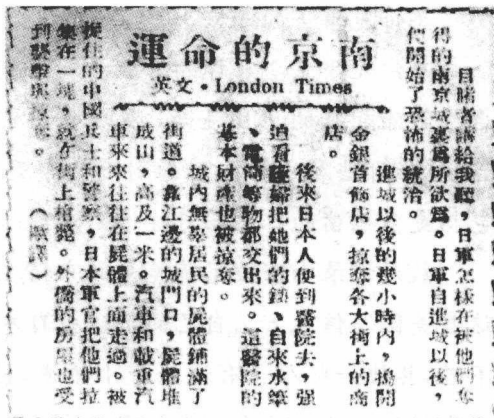 南京的命運
英文・London Times
目睹者講給我聽,日軍怎樣在被他們奪
得的南京城裏爲所欲爲。日軍自進城以後,
們開始了恐怖的統治。
進城以後的幾小時內,搗開
金銀首飾店,掠奪各大街上的商
店。
後來日本人便到醫院去,強
迫看護婦把她們的錢、自來水筆
、電筒等物都交出來。這醫院的
基本財產也被掠奪。
城內無辜居民的屍體鋪滿了
街道。靠江邊的城門口,屍體堆
成山,高及一米。汽車和載重汽
車來來往往在屍體上面走過。被
捉住的中國兵士和警察,日本軍官把他們拉
集在一塊,就在街上槍斃。外僑的房屋也受
到襲擊與掠奪。 (譯)